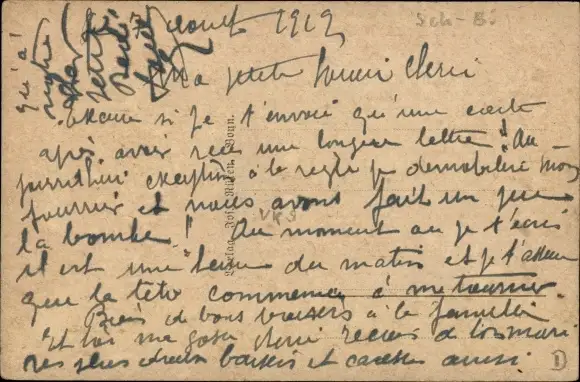 août 1919
Ma petite Souris chérie
Excuse si je t'envoie qu'une carte
après avoir reçu une longue lettre. Au-
jourd'hui exception à la règle je démobilise mon
fourrier et nous avons fait un peu
la bombe! Au moment où je t'écris
il est une heure du matin et je t'assure
que la tête commence à me tourner.
Bien de bons baisers à la famille
Et toi ma gosse chérie reçois de ton mari
ses plus doux baisers et caresses aussi
qu'à
Verlag Jos. Bonn.
VK9
Sch-B.
D